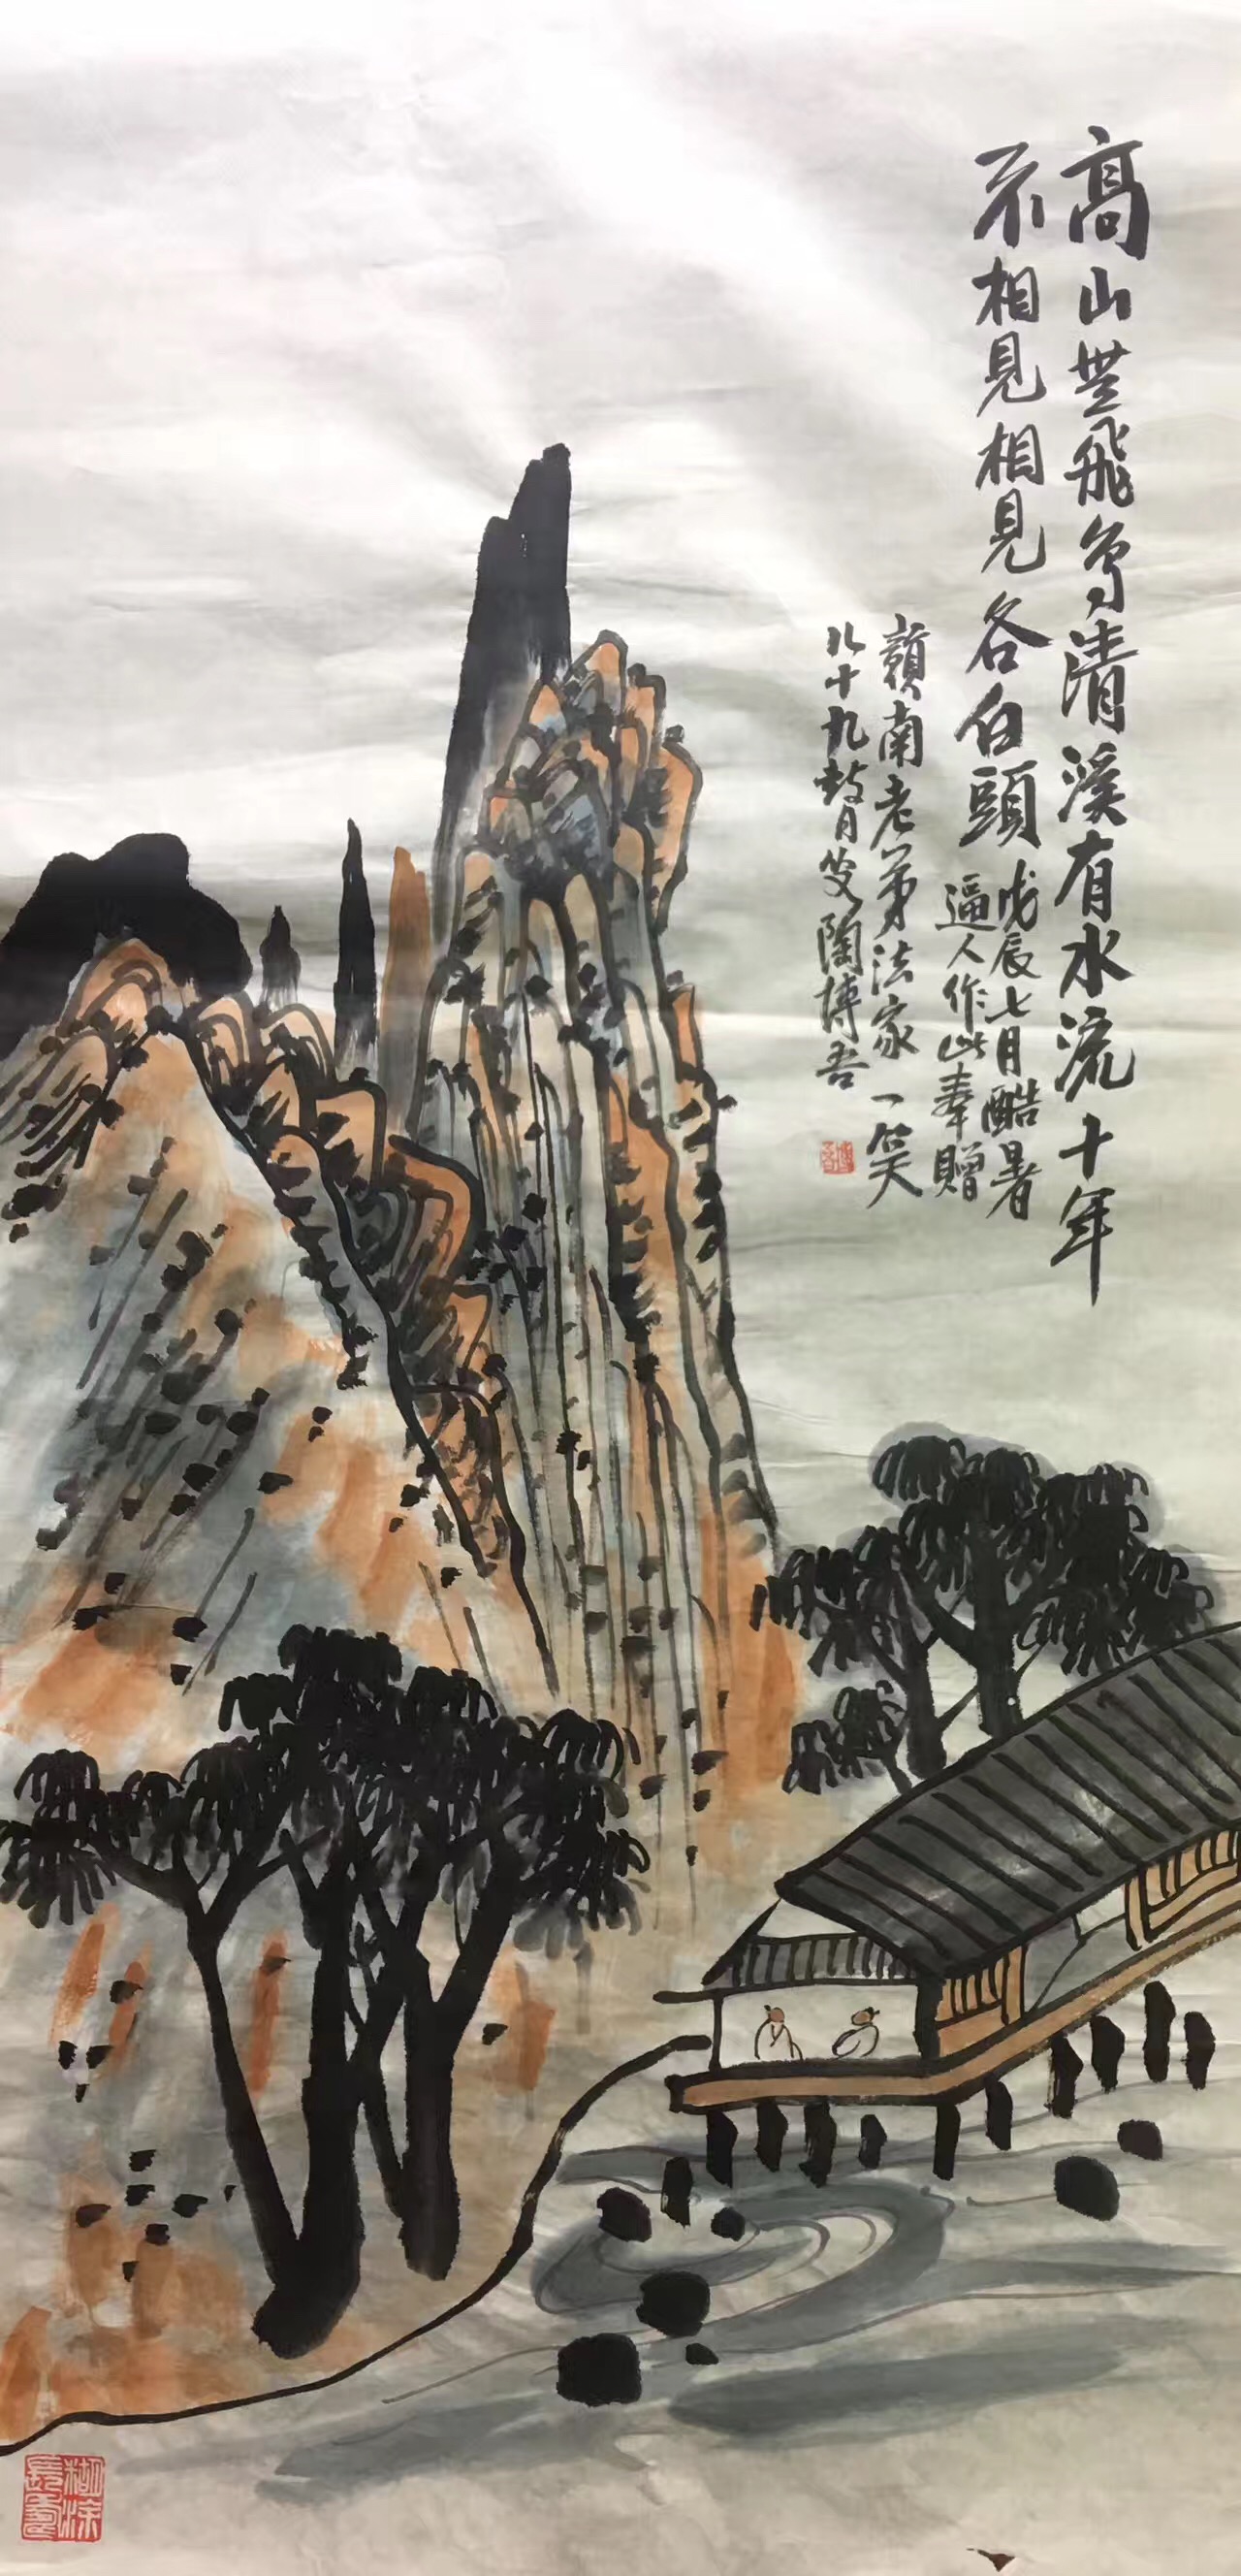 高山無飛鳥清溪有水流十年
不相見相見各白頭
戊辰七月酷暑
逼人作此奉贈
南老弟法家一笑
八十九叟陶博吾
博吾
糊涂
長壽